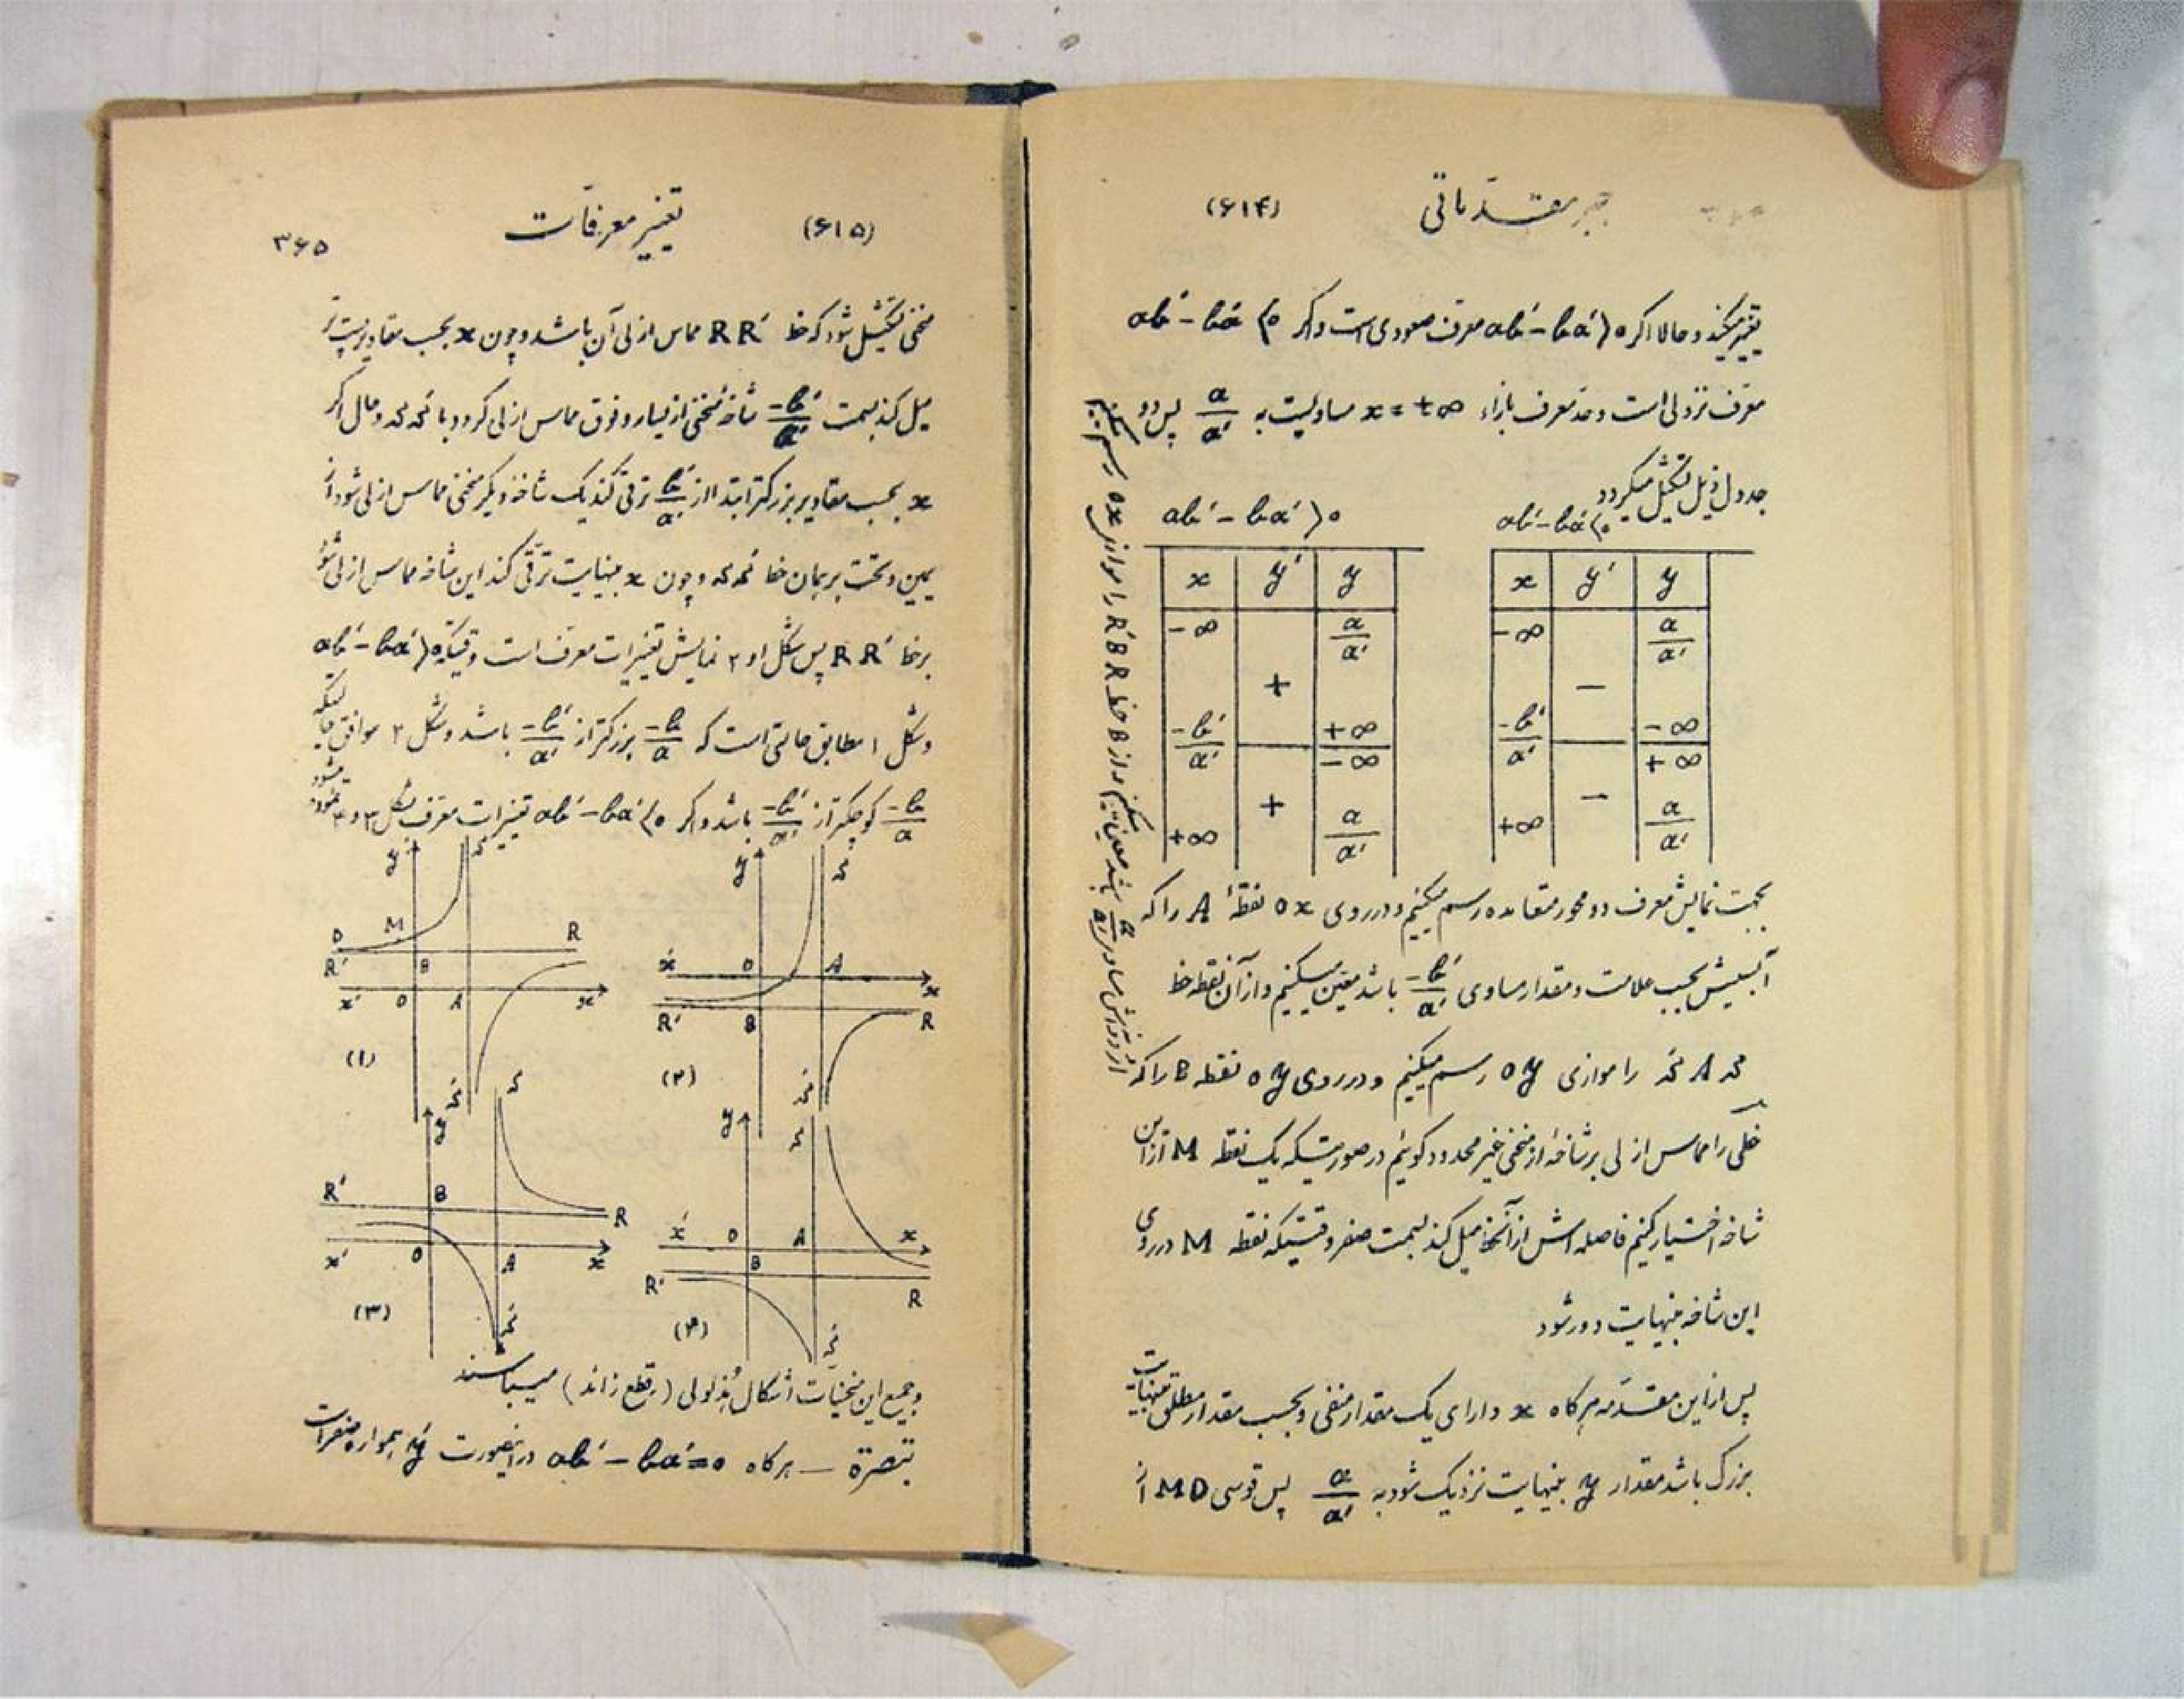 جبر مقدّماتی (۶۱۴)
تغییر میکند و حالا اگر ab′ - ba′ ⟩ 0 معرف صعودی است و اگر ab′ - ba′ ⟨ 0
معرف نزولی است و حد معرف بازاء x = ±∞ مساویست به a/a′ پس دو
جدول ذیل تشکیل میگردد
ab′ - ba′ ⟨ 0 ab′ - ba′ ⟩ 0
x y′ y x y′ y
-∞ a/a′ -∞ a/a′
+ -
-b′/a′ +∞ -b′/a′ -∞
-∞ +∞
+ -
+∞ a/a′ +∞ a/a′
بجهت نمایش معرف دو محور متعامده رسم میکنیم و در روی ox نقطهٔ A را که
آبسیسش بحسب علامت و مقدار مساوی -b′/a′ باشد معین میکنیم و از آن نقطه خط
A را موازی oy رسم میکنیم و در روی oy نقطه B را که
اردنه‌اش مساوی a/a′ باشد معین میکنیم و از B خط R′BR را موازی ox رسم میکنیم
خطی را مماس ازلی بر شاخهٔ از منحنی غیر محدود گوئیم در صورتیکه یک نقطه M از این
شاخه اختیار کنیم فاصله اش از آنخط میل کند بسمت صفر وقتیکه نقطه M در روی
این شاخه بینهایت دور شود
پس از این مقدّمه هر گاه x دارای یک مقدار منفی و بحسب مقدار مطلق بینهایت
بزرگ باشد مقدار y بینهایت نزدیک شود به a/a′ پس قوسی MD از
۳۶۵ تغییر معرفات (۶۱۵)
منحنی تشکیل شود که خط RR′ مماس ازلی آن باشد و چون x بحسب مقادیر
میل کند بسمت -b′/a′ شاخهٔ منحنی از یسار و فوق مماس ازلی گردد با و حال اگر
x بحسب مقادیر بزرگتر ابتدا از -b′/a′ ترقی کند یک شاخه دیگر منحنی مماس ازلی شود از
یمین و تحت بر همان خط و چون x بینهایت ترقّی کند این شاخه مماس ازلی شود
بر خط RR′ پس شکل ۱ و ۲ نمایش تغییرات معرف است وقتیکه ab′ - ba′ ⟩ 0
و شکل ۱ مطابق حالتی است که -b/a بزرگتر از -b′/a′ باشد و شکل ۲ موافق حالیکه
-b/a کوچکتر از -b′/a′ باشد و اگر ab′ - ba′ ⟨ 0 تغییرات معرف شکل ۳ و ۴
y D M R R′ B x′ O A x (۱)
y x′ O A x R′ B R (۲)
y R′ B R x′ O A x (۳)
y x′ O A x B R′ R (۴)
و جمیع این منحنیات اشکال هُذلولی (قطع زائد) میباشند
تبصرة — هر گاه ab′ - ba′ = 0 در اینصورت y′ همواره صفر است